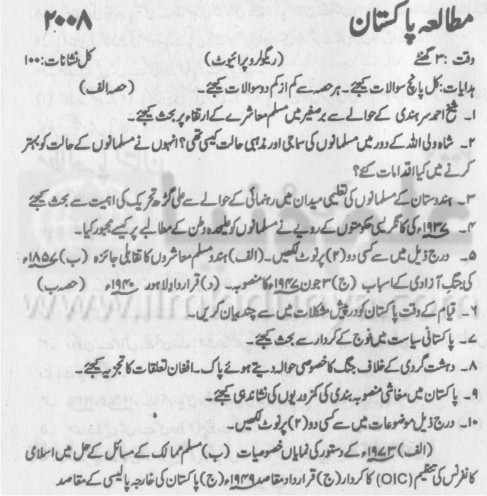 مطالعہ پاکستان ۲۰۰۸
وقت: ۳ گھنٹے (ریگولر و پرائیویٹ) کل نشانات: ۱۰۰
ہدایات: کل پانچ سوالات کیجئے۔ ہر حصہ سے کم از کم دو سوالات کیجئے۔ (حصہ الف)
۱۔ شیخ احمد سرہندی کے حوالے سے برصغیر میں مسلم معاشرے کے ارتقاء پر بحث کیجئے۔
۲۔ شاہ ولی اللہ کے دور میں مسلمانوں کی سماجی اور مذہبی حالت کیسی تھی؟ انہوں نے مسلمانوں کے حالت کو بہتر
کرنے میں کیا اقدامات کئے؟
۳۔ ہندوستان کے مسلمانوں کی تعلیمی میدان میں رہنمائی کے حوالے سے علی گڑھ تحریک کی اہمیت سے بحث کیجئے
۴۔ ۱۹۳۷ء کی کانگریسی حکومتوں کے رویے نے مسلمانوں کو علیحدہ وطن کے مطالبے پر کیسے مجبور کیا۔
۵۔ درج ذیل میں سے کسی دو (۲) پر نوٹ لکھیں۔ (الف) ہندو مسلم معاشروں کا تقابلی جائزہ (ب) ۱۸۵۷ء
کی جنگ آزادی کے اسباب (ج) ۳ جون ۱۹۴۷ء کا منصوبہ۔ (د) قرارداد لاہور ۱۹۴۰ء (حصہ ب)
۶۔ قیام کے وقت پاکستان کو درپیش مشکلات میں سے چند بیان کریں۔
۷۔ پاکستانی سیاست میں فوج کے کردار سے بحث کیجئے۔
۸۔ دہشت گردی کے خلاف جنگ کا خصوصی حوالہ دیتے ہوئے پاک۔افغان تعلقات کا تجزیہ کیجئے۔
۹۔ پاکستان میں معاشی منصوبہ بندی کی کمزوریوں کی نشاندہی کیجئے۔
۱۰۔ درج ذیل موضوعات میں سے کسی دو (۲) پر نوٹ لکھیں۔
(الف) ۱۹۷۳ء کے دستور کی نمایاں خصوصیات (ب) مسلم ممالک کے مسائل کے حل میں اسلامی
کانفرنس کی تنظیم (OIC) کا کردار (ج) قرارداد مقاصد ۱۹۴۹ء (ج) پاکستان کی خارجہ پالیسی کے مقاصد